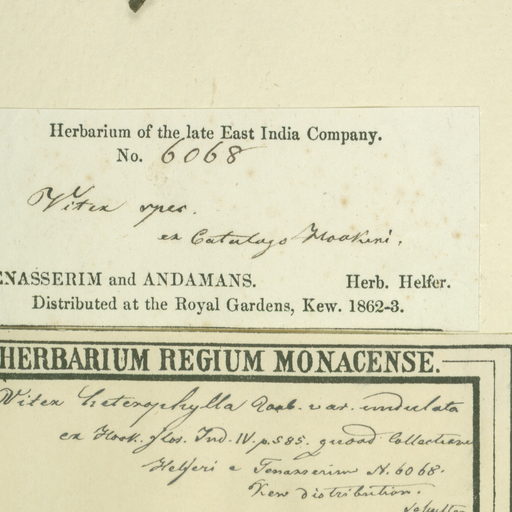 Herbarium of the late East India Company.
No. 6068
Vitex spec.
ex Catalogo Hookeri.
ENASSERIM and ANDAMANS. Herb. Helfer.
Distributed at the Royal Gardens, Kew. 1862-3.
HERBARIUM REGIUM MONACENSE.
Vitex heterophylla Roxb. var. undulata
ex Hook. flor. Ind. IV. p. 585. quoad Collectionem
Helferi e Tenasserim N. 6068.
Kew distribution.